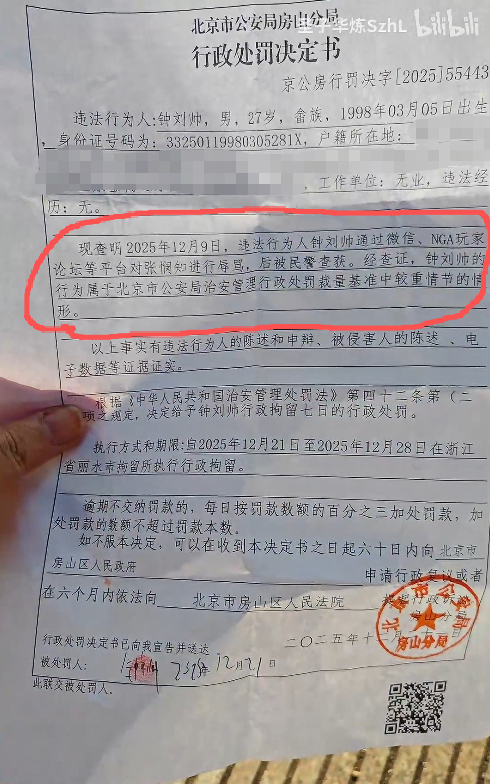 圣子华炼SzhL bilibili
北京市公安局房山分局
行政处罚决定书
京公房行罚决字[2025]55443
违法行为人:钟刘帅,男,27岁,畲族,1998年03月05日出生
,身份证号码为:33250119980305281X,户籍所在地:
,工作单位:无业,违法经
历:无。
现查明2025年12月9日,违法行为人钟刘帅通过微信、NGA玩家
论坛等平台对张悯知进行辱骂,后被民警查获。经查证,钟刘帅的
行为属于北京市公安局治安管理行政处罚裁量基准中较重情节的情
形。
以上事实有违法行为人的陈述和申辩、被侵害人的陈述、电
子数据等证据证实。
根据《中华人民共和国治安管理处罚法》第四十二条第(二
项之规定,决定给予钟刘帅行政拘留七日的行政处罚。
执行方式和期限:自2025年12月21日至2025年12月28日在浙江
省丽水市拘留所执行行政拘留。
逾期不交纳罚款的,每日按罚款数额的百分之三加处罚款,加
处罚款的数额不超过罚款本数。
如不服本决定,可以在收到本决定书之日起六十日内向 北京市
房山区人民政府 申请行政复议或者
在六个月内依法向 北京市房山区人民法院
房山分局
二〇二五年十
行政处罚决定书已向我宣告并送达
被处罚人: 年12月21日
此联交被处罚人。